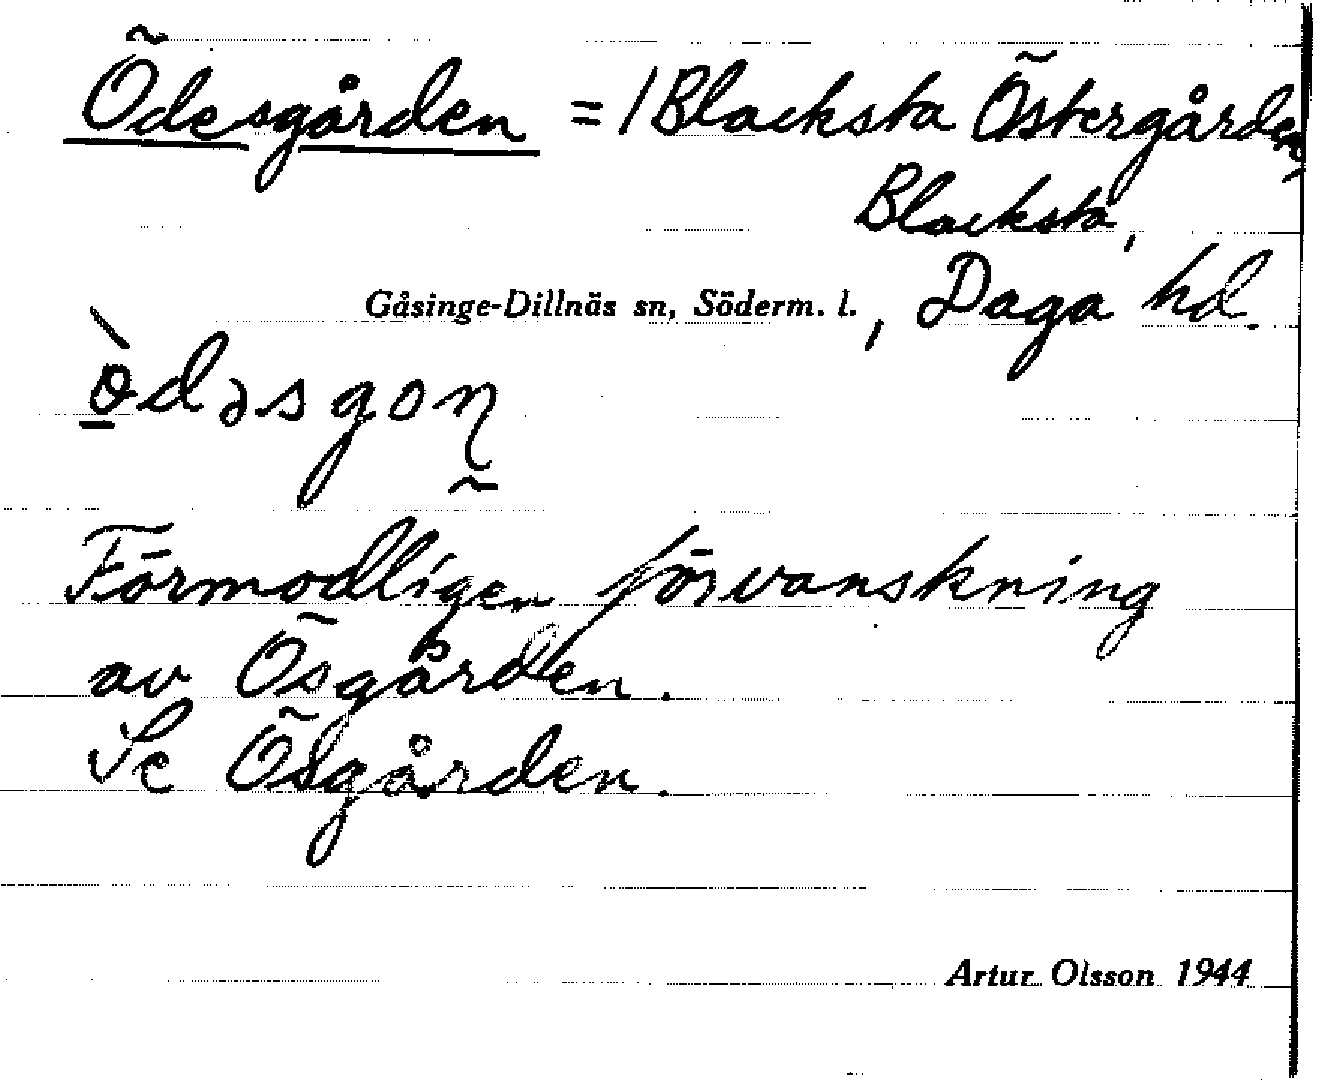 Ödesgården = /Blacksta Östergården,
Blacksta,
Gåsinge-Dillnäs sn, Söderm. l., Daga hd.
Förmodligen förvanskning
av Ösgården.
Se Ösgården.
Artur Olsson 1944